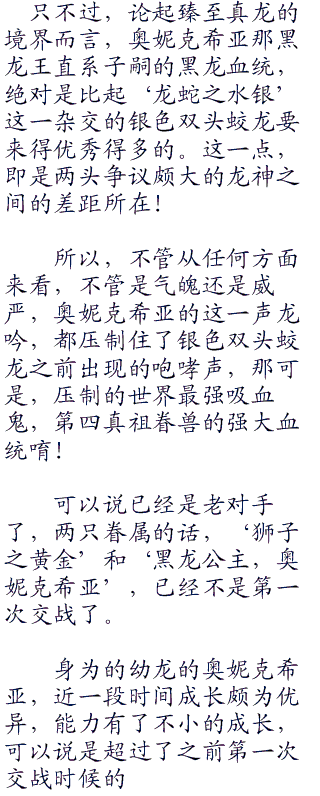 只不过，论起臻至真龙的
境界而言，奥妮克希亚那黑
龙王直系子嗣的黑龙血统，
绝对是比起‘龙蛇之水银’
这一杂交的银色双头蛟龙要
来得优秀得多的。这一点，
即是两头争议颇大的龙神之
间的差距所在！
所以，不管从任何方面
来看，不管是气魄还是威
严，奥妮克希亚的这一声龙
吟，都压制住了银色双头蛟
龙之前出现的咆哮声，那可
是，压制的世界最强吸血
鬼，第四真祖眷兽的强大血
统唷！
可以说已经是老对手
了，两只眷属的话，‘狮子
之黄金’和‘黑龙公主，奥
妮克希亚’，已经不是第一
次交战了。
身为的幼龙的奥妮克希
亚，近一段时间成长颇为优
异，能力有了不小的成长，
可以说是超过了之前第一次
交战时候的